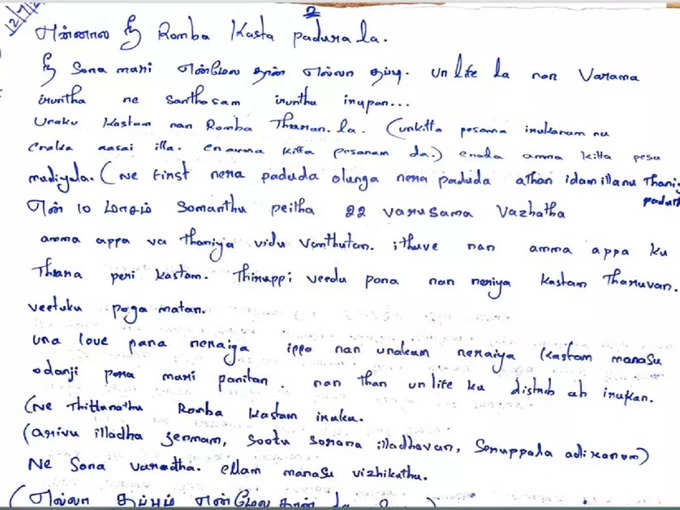 12/7/2
2
என்னால நீ Romba Kasta padura la.
நீ Sona mari என்மேல தான் எல்லா தப்பு. un life la nan Varama
iruntha ne santhosam iruntha irupan...
Unaku Kastam nan Romba Tharan. la. (unkitta pesama irukanum nu
enaku aasai illa. en amma kitta pesanam da.) enada amma kitta pesu
madiyala. (Ne first nera paduda olunga nera paduda athan idamillanu Thaniy
padura
என் 10 மாசம் Somanthu petha 22 varusama Vazhatha
amma appa va Thaniya vidu Vanthutan. ithuve nan amma appa ku
Thara peri kastam. Thiruppi veedu pona nan neriya Kastam Tharuvan.
veetuku poga matan.
Una love pana neraiya ippo nan unakum neraiya Kastam manasu
odanji pona mari panitan. nan than un life ku distrub ah irukan.
(Ne Thittunathu Romba Kastam iruku.
(arivu illadha jenmam, Sootu sorana illadhavan, Seruppala adikanum)
Ne Sona varadha. ellam manasu vizhikathu.
(எல்லா தப்பும் என்மேல தான் la